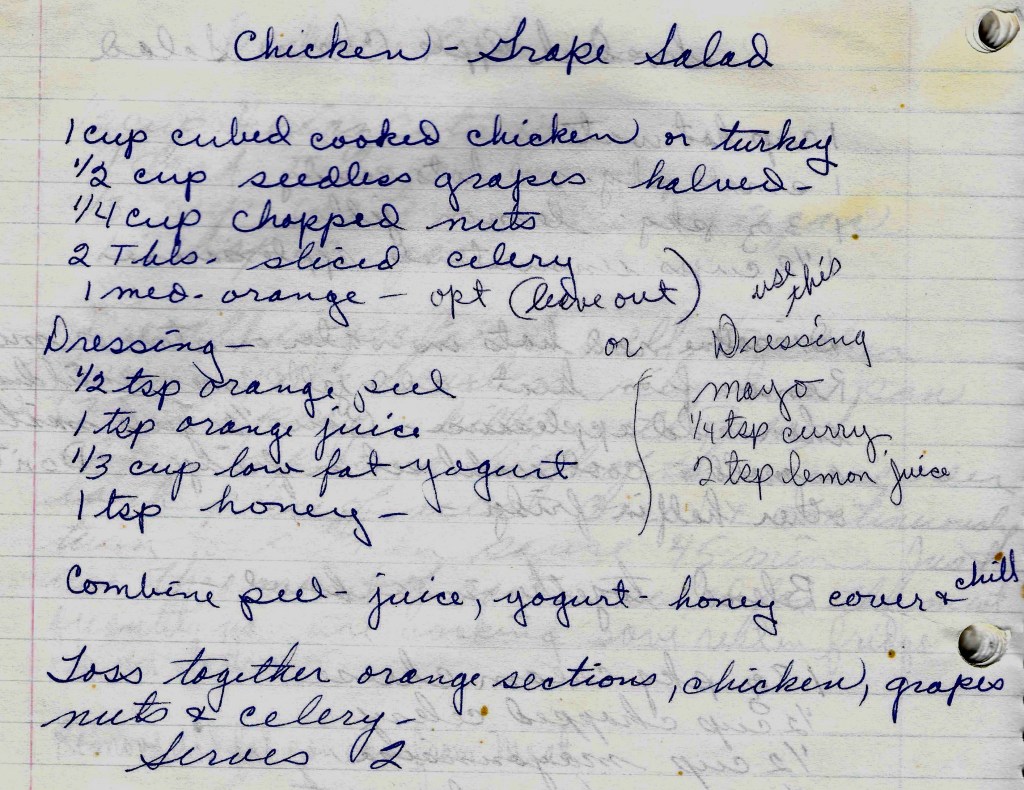 Chicken - Grape Salad
1 cup cubed cooked chicken or turkey
1/2 cup seedless grapes halved -
1/4 cup chopped nuts
2 Tbls. sliced celery
1 med. orange - opt (leave out)
use this
Dressing -
1/2 tsp orange peel
1 tsp orange juice
1/3 cup low fat yogurt
1 tsp honey -
or Dressing
mayo
1/4 tsp curry
2 tsp lemon juice
Combine peel - juice, yogurt - honey cover & chill
Toss together orange sections, chicken, grapes
nuts & celery -
Serves 2